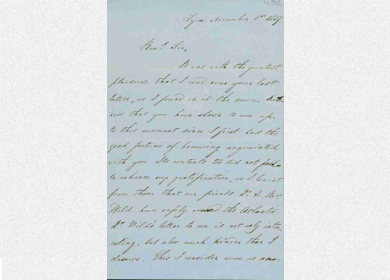 Lyra November 1st 1857
Revd. Sir,
It was with the greatest
pleasure that I read over your last
letter, as I found in it the same
ness that you have shown to me up
to this moment since I first had the
good fortune of becoming acquainted
with you. Its materials did not fail
to enhance my gratification, as I learnt
from them that our friends Dr. & Mrs
Wild have safely crossed the Atlantic.
Dr Wild's letter to me is not only inter
esting, but also much kinder than I
deserve. This I consider more as